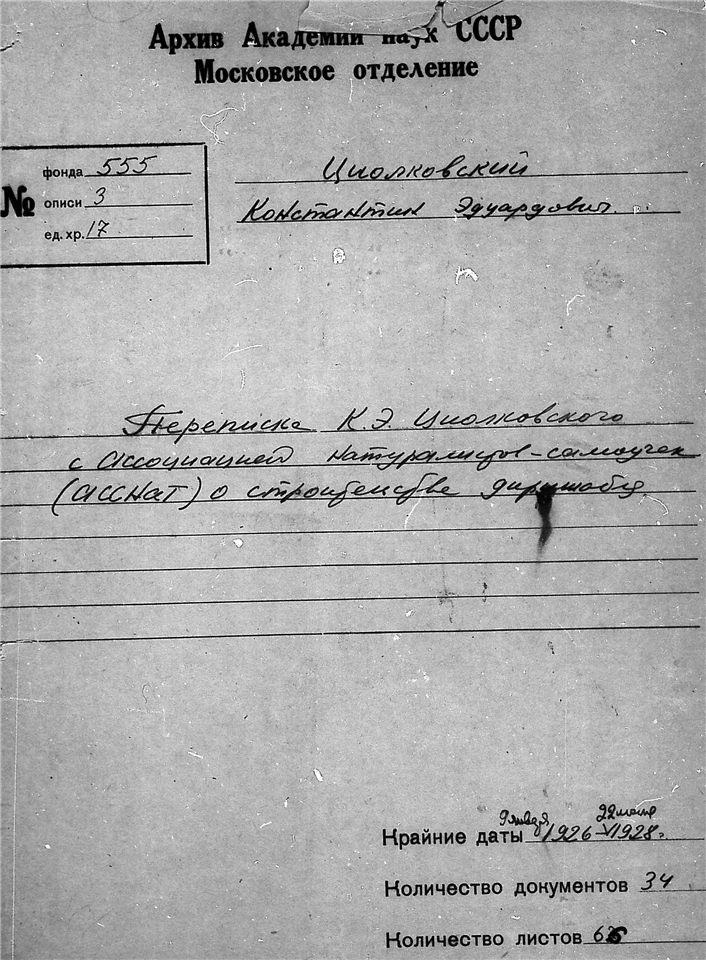 Архив Академии наук СССР
Московское отделение
№
фонда 555
описи 3
ед. хр. 17
Циолковский
Константин Эдуардович.
Переписка К.Э. Циолковского
с Ассоциацией натуралистов-самоучек
(АССНАТ) о строительстве дирижабля
Крайние даты 9 января 1926 - 22 июня 1928 г.
Количество документов 34
Количество листов